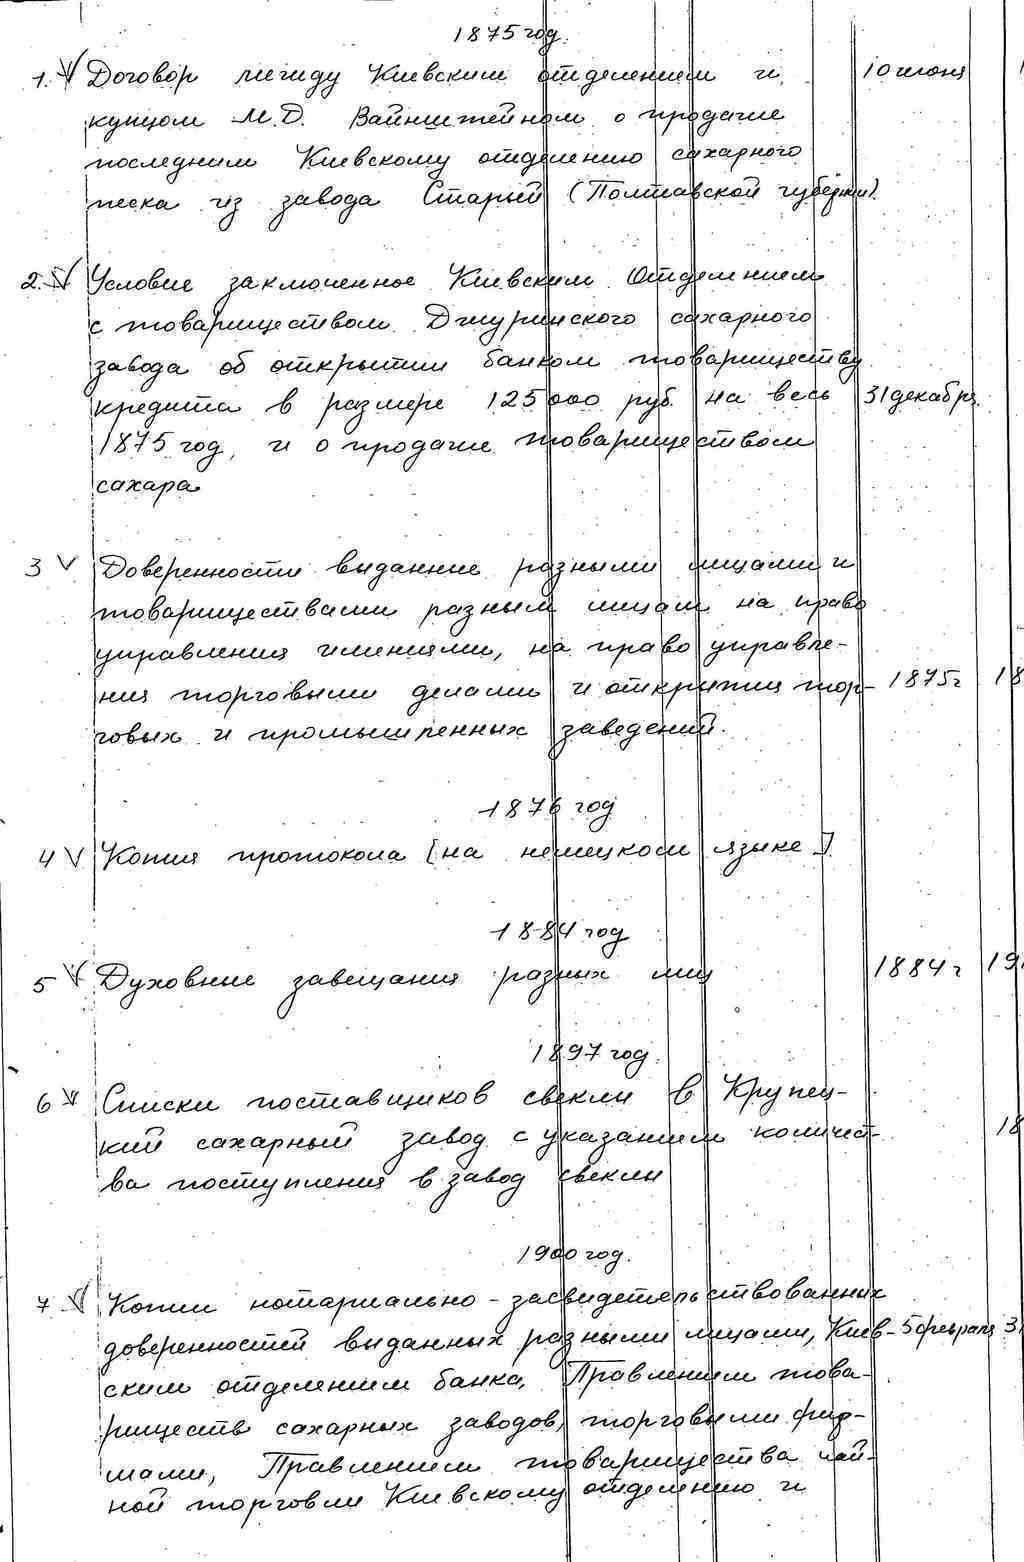 1875 год.
1. V Договор между Киевским отделением и 10 июня 1
купцом М.Д. Вайнштейном о продаже
последним Киевскому отделению сахарного
песка из завода Старый (Полтавской губернии).
2. V Условие заключенное Киевским Отделением
с товариществом Джуринского сахарного
завода об открытии банком товариществу
кредита в размере 125000 руб. на весь 31 декабря.
1875 год, и о продаже товариществом
сахара
3 V Доверенности выданные разными лицами и
товариществами разным лицам на право
управления имениями, на право управле-
ния торговыми делами и открытия тор- 1875 г 18
говых и промышленных заведений.
1876 год
4 V Копия протокола [на немецком языке]
1884 год
5 V Духовные завещания разных лиц 1884 г 19
1897 год.
6 V Списки поставщиков свеклы в Крупец-
кий сахарный завод с указанием количест- 18
ва поступления в завод свеклы
1900 год.
7 V Копии нотариально-засвидетельствованных
доверенностей выданных разными лицами, Киев- 5 февраля 3
ским отделением банка, Правлением това-
риществ сахарных заводов, торговыми фир-
мами, Правлением товарищества чай-
ной торговли Киевскому отделению и